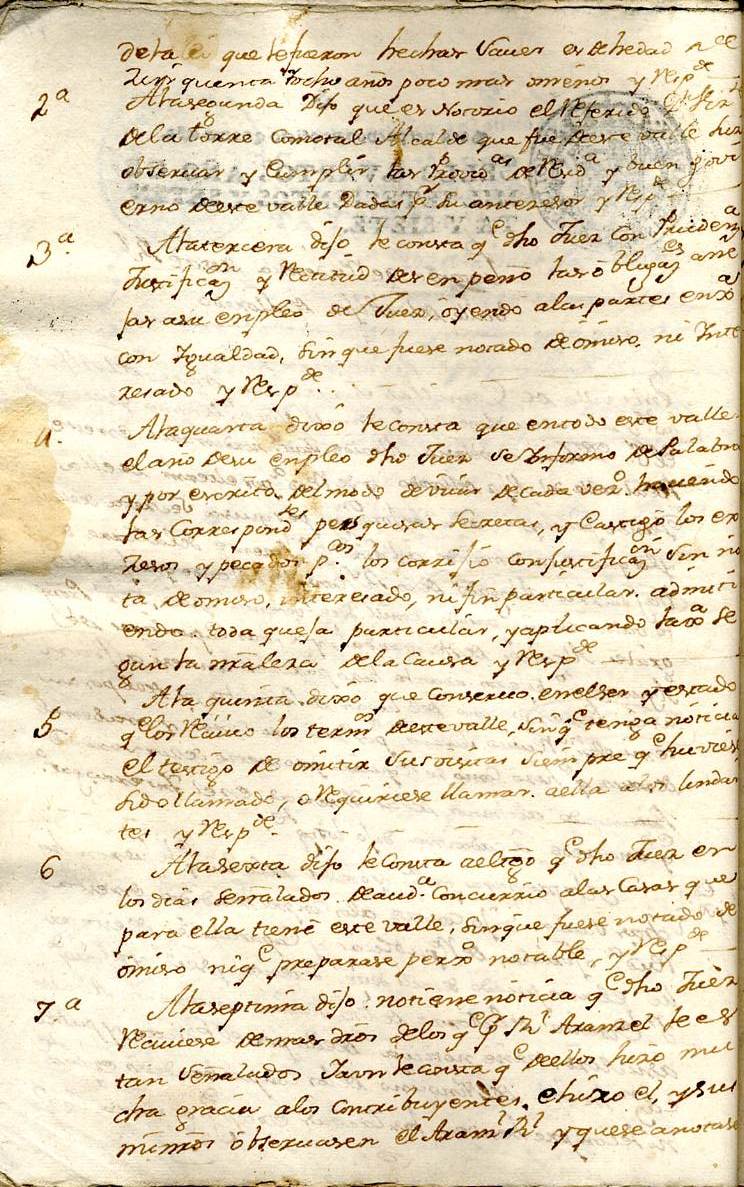 dela lei que le fueron hechas Saver es de hedad de
Zinquenta y ocho años poco mas omenos y Resp.de
2a Ala segunda Dijo que es Notorio el Referido
dela torre Como tal Alcalde que fue de este valle hizo
observar y Cumplir las Provid.as de Resid.a y buen govi
erno de este valle Dadas p.r su antecesor y Resp.de
3.a Ala tercera dijo le consta q.e dho Juez con Prudenz.a
Justificaz.on y Rectitud desenpeño las obligaz.es ane
jas asu enpleo de Juez, oyendo alas partes
con Igualdad, sin que fuese notado de omiso, ni Inte
resado y Resp.de
4. Ala quarta dixo le Consta que entodo este valle
el año desu enpleo dho Juez se Informo de Palabra
y por escrito del modo de vivir de cada vez.o haciendo
las Correspond.tes pesquisas secretas, y Castigo los ex
zesos y pecados p.cos los corrijio con justificaz.on sin no
ta de omiso, interesado, ni fin particular. admiti
endo toda queja particular, y aplicando
gun la nralera dela Causa y Resp.de
5 Ala quinta dixo que Conservo enelser y estado
q.e los Recivio los term.os deeste valle, sin q.e tenga noticia
el testigo de omitir sus visitas siempre q.e huviese
sido llamado, o Requiriese llamar aella alos lindan
tes y Resp.de
6 Ala sexta dijo le Consta al tgo q.e dho Juez en
los dias señalados de aud.a Concurrio alas Casas que
para ella tiene este valle, sin que fuese notado de
omiso ni q.e preparase perx.o notable, y Resp.de
7.a Ala septima dijo no tiene noticia q.e dho Juez
Reciviese demas dros delos q.e p.r Rl Aranzel le es
tan señalados Iaun le consta q.e deellos hizo mu
cha gracia alos contribuyentes, e hizo el, y sus
minros observasen el Aran.l Rl y que se anotase